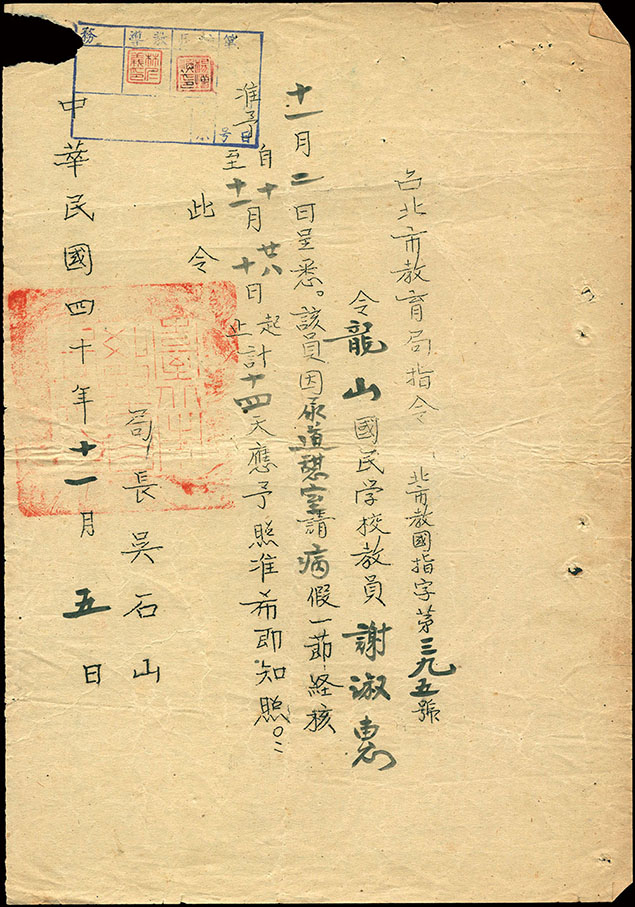 台北市教育局指令 北市教國指字第三九五號
令龍山國民学校教員謝淑惠
十一月二日呈悉。該員因尿道憩室請病假一節経核
准予自十月廿八日起
至十一月十日止
計十四天應予照准希即知照。
此令
局長吳石山
中華民國四十年十一月五日
務
導
教
号
日